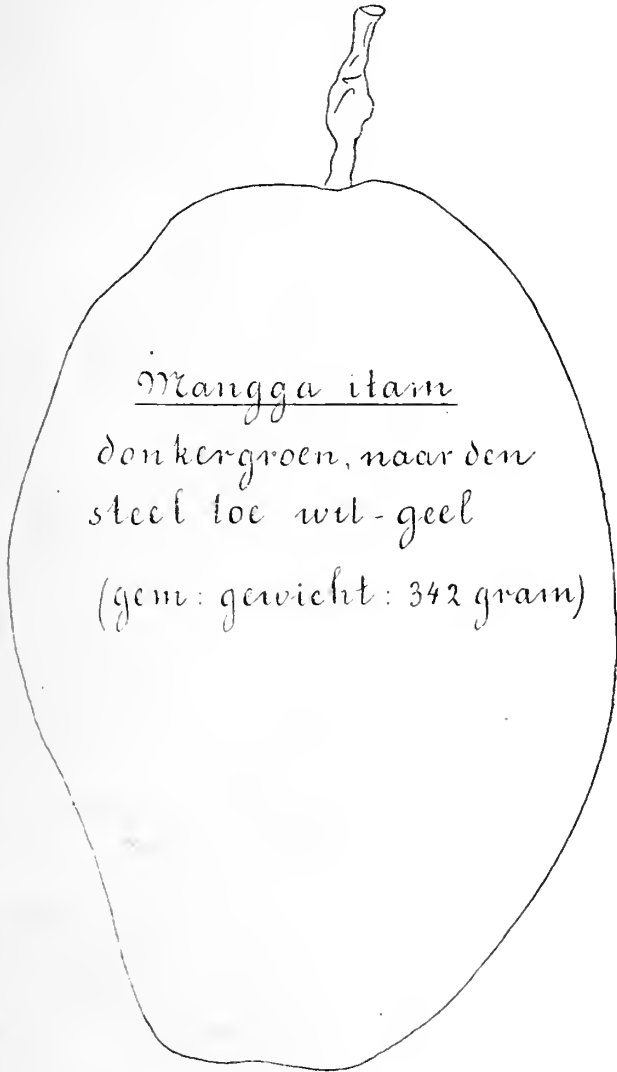 Mangga itam
donkergroen, naar den
steel toe wit-geel
(gem: gewicht: 342 gram)